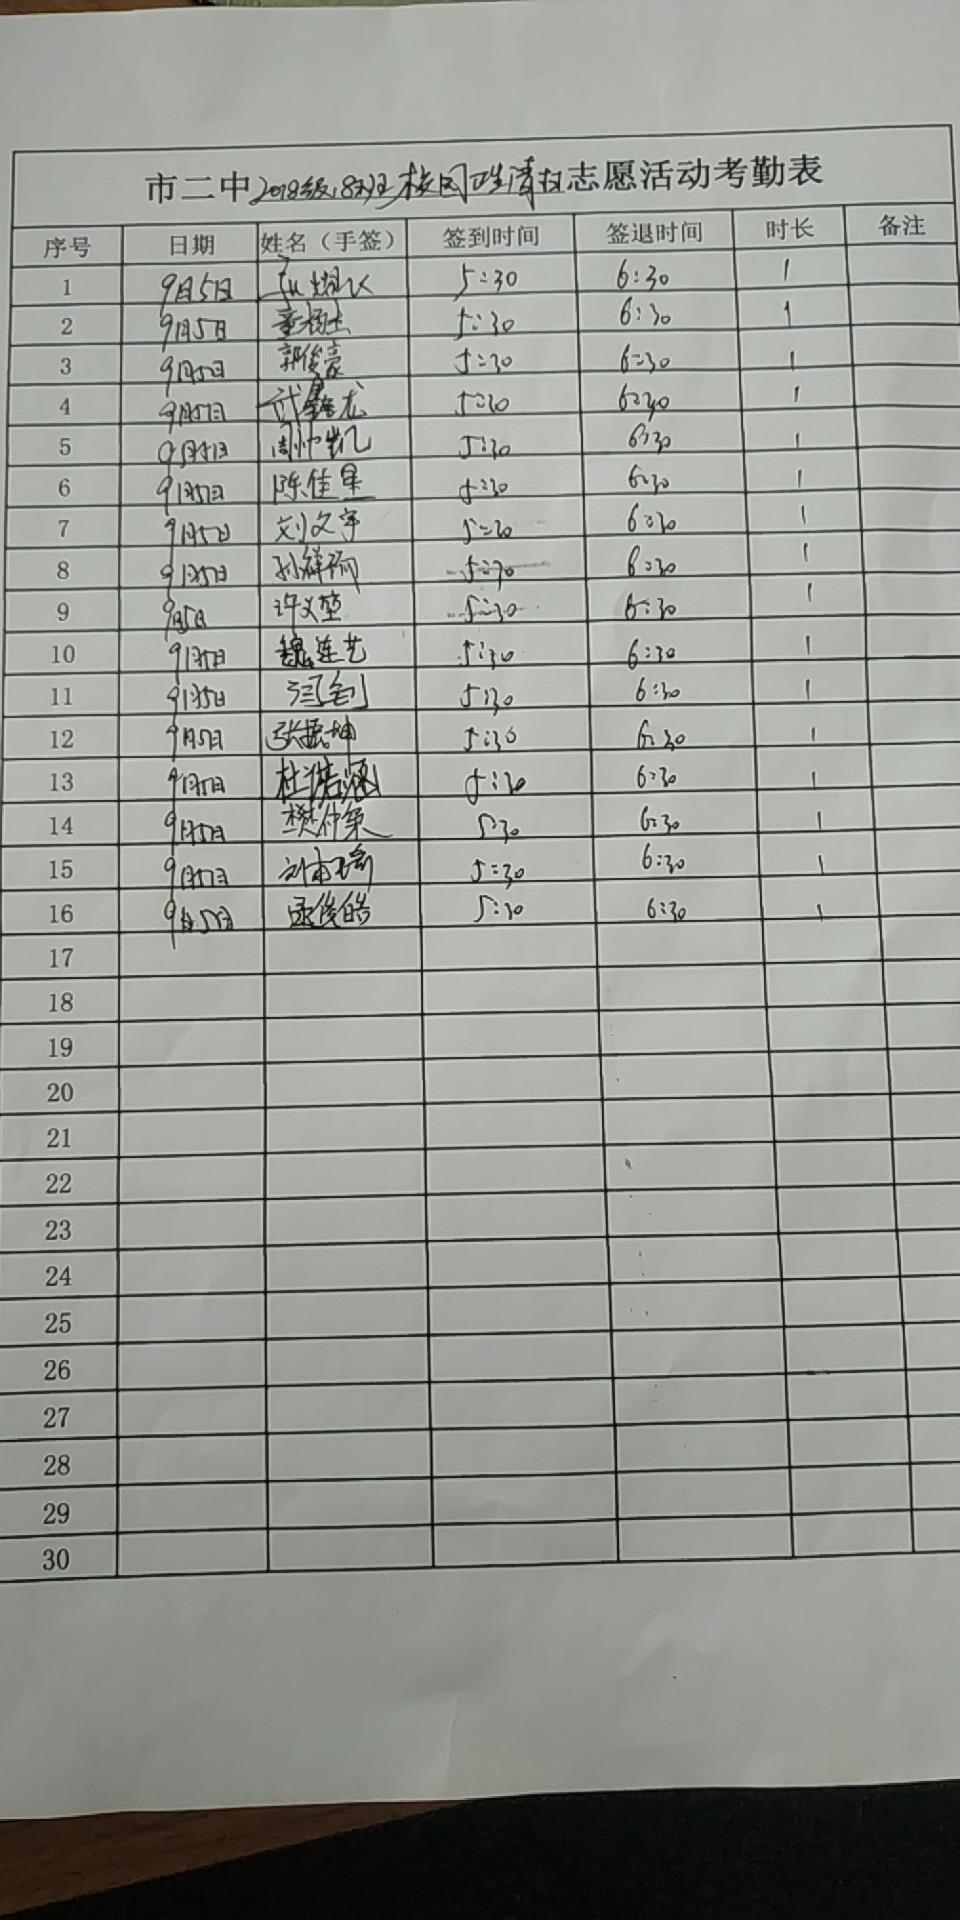 市二中2018级18班校园卫生清扫志愿活动考勤表
序号 日期 姓名（手签） 签到时间 签退时间 时长 备注
1 9月5日 5:30 6:30 1
2 9月5日 5:30 6:30 1
3 9月5日 郭俊豪 5:30 6:30 1
4 9月5日 5:30 6:30 1
5 9月5日 周帅凯 5:30 6:30 1
6 9月5日 陈佳星 5:30 6:30 1
7 9月5日 刘文宇 5:30 6:30 1
8 9月5日 孙祥瑞 5:30 6:30 1
9 9月5日 许义堃 5:30 6:30 1
10 9月5日 魏连艺 5:30 6:30 1
11 9月5日 5:30 6:30 1
12 9月5日 张振坤 5:30 6:30 1
13 9月5日 杜浩涵 5:30 6:30 1
14 9月5日 樊仲策 5:30 6:30 1
15 9月5日 5:30 6:30 1
16 9月5日 5:30 6:30 1
17
18
19
20
21
22
23
24
25
26
27
28
29
30